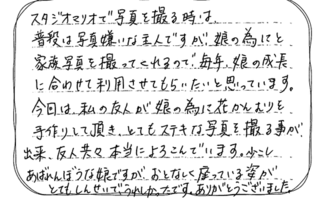 スタジオマリオで写真を撮る時は、
普段は写真嫌いな主人ですが、娘の為にと
家族写真を撮ってくれるので、毎年、娘の成長
に合わせて利用させてもらいたいと思っています。
今日は、私の友人が娘の為に花かんむりを
手作りして頂き、とてもステキな写真を撮る事が
出来、友人共々本当によろこんでいます。少し
あばれんぼうな娘ですが、おとなしく座っている姿が
とてもしんせいでうれしかったです。ありがとうございました。